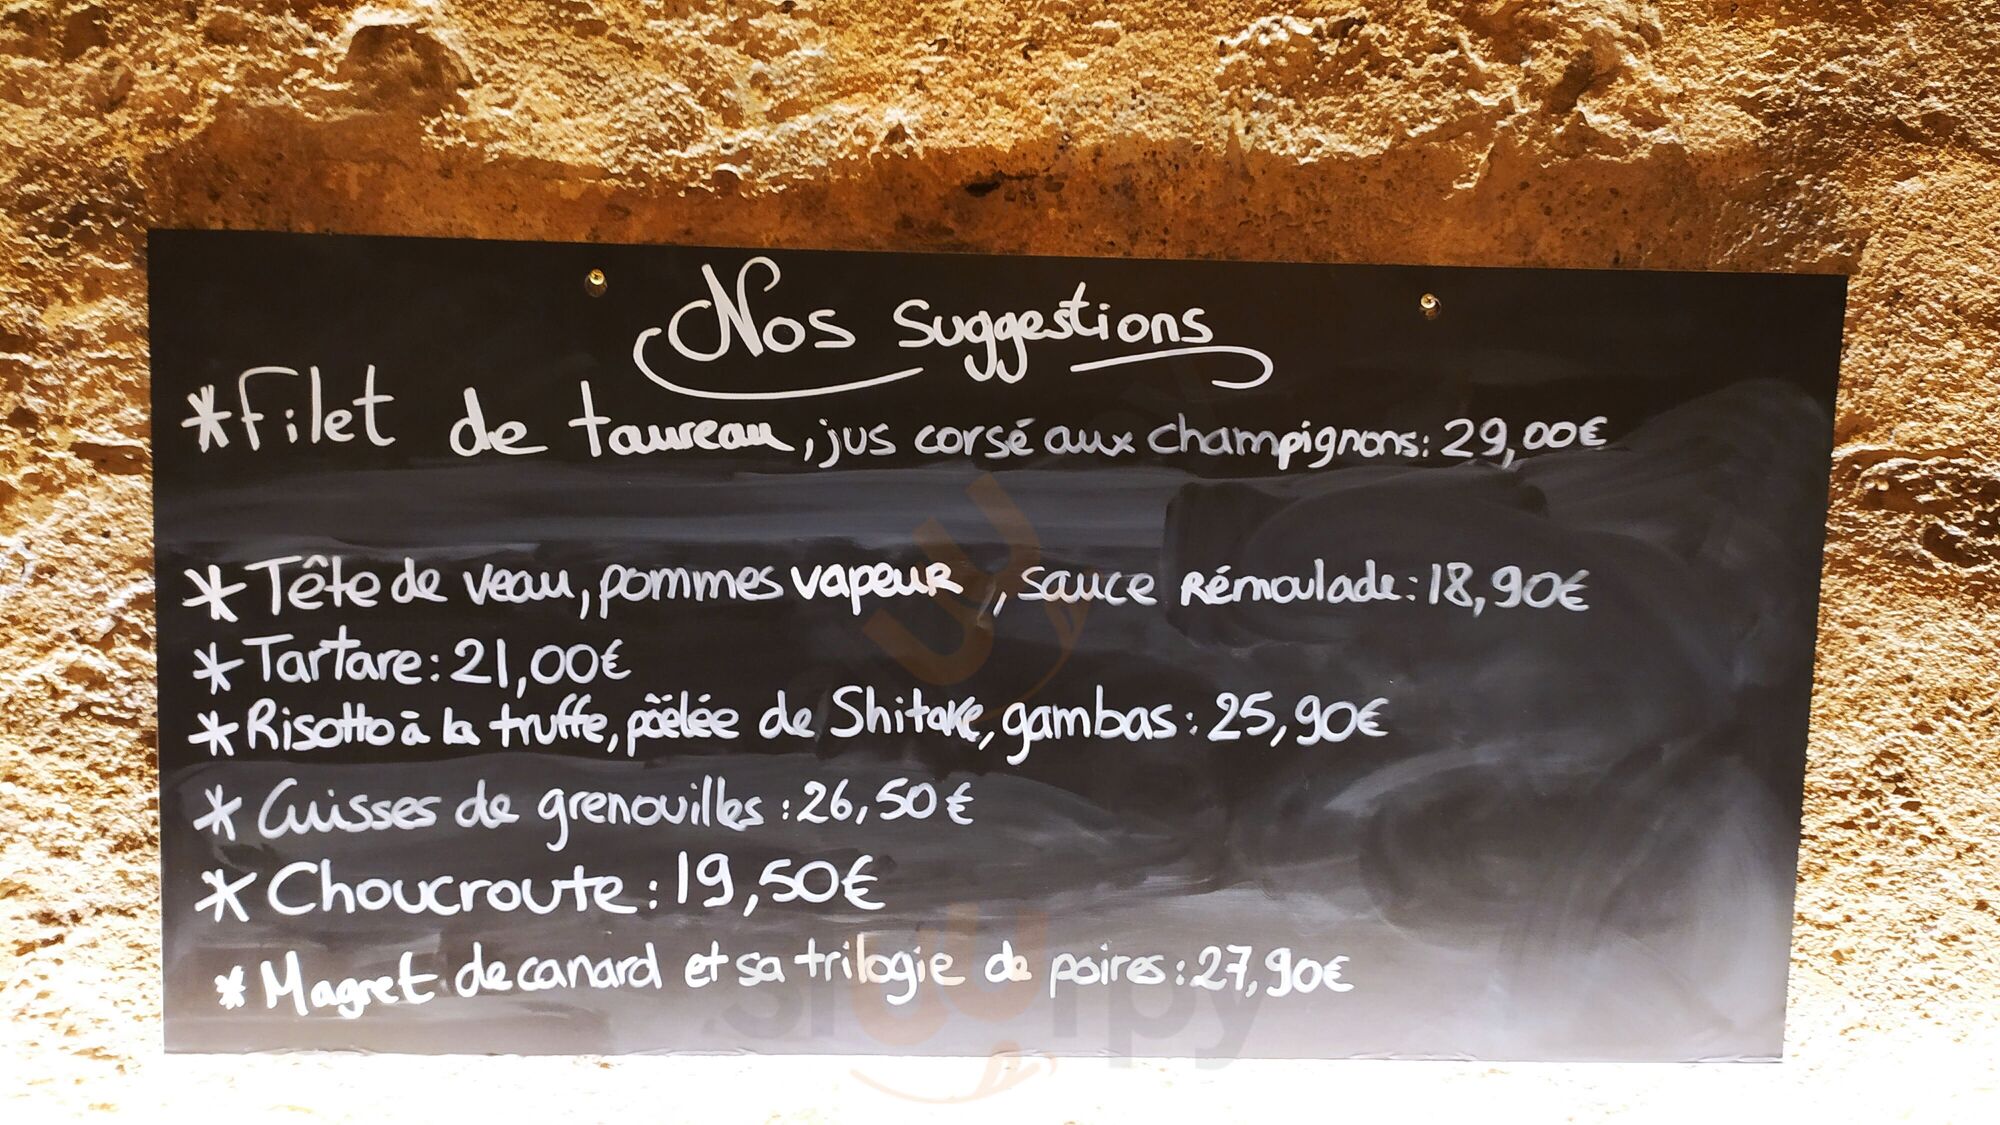 Nos suggestions
*Filet de taureau, jus corsé aux champignons: 29,00€
*Tête de veau, pommes vapeur, sauce Rémoulade: 18,90€
*Tartare: 21,00€
*Risotto à la truffe, pöêlée de Shitake, gambas: 25,90€
*Cuisses de grenouilles: 26,50€
*Choucroute: 19,50€
*Magret de canard et sa trilogie de poires: 27,90€
sluurpy